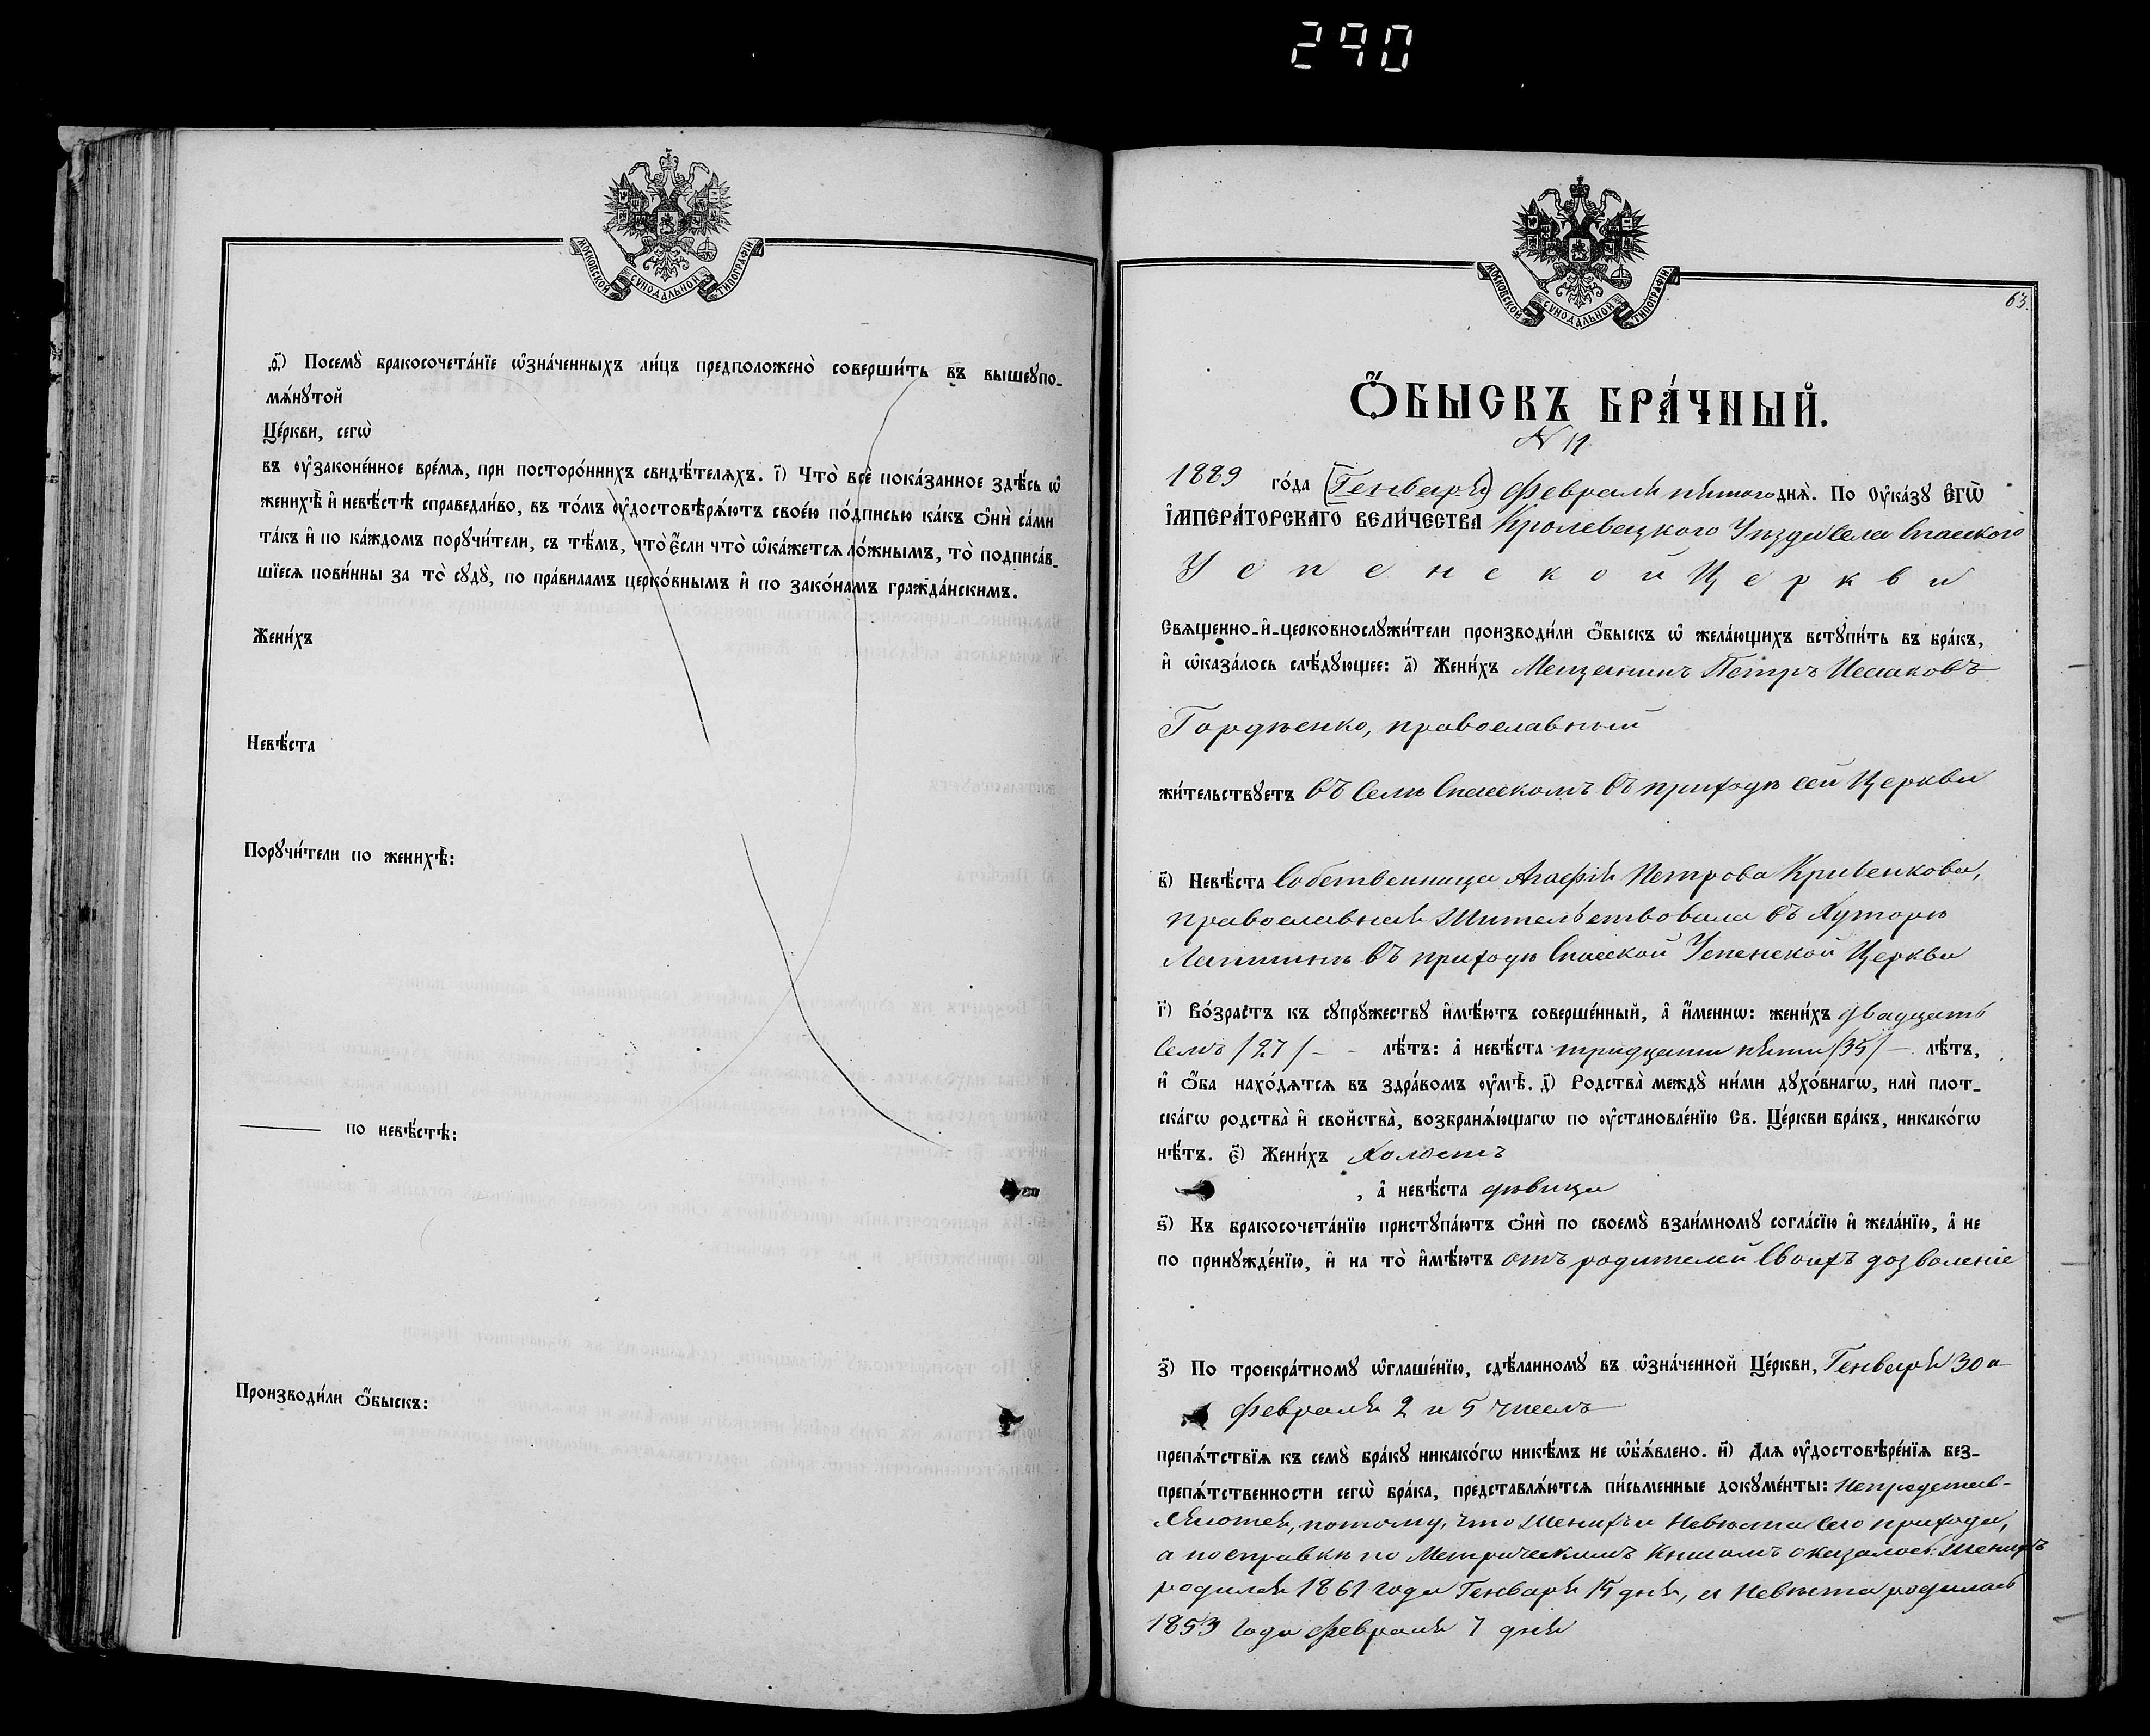 290
МОСКОВСКОЙ СѴНОДАЛЬНОЙ ТИПОГРАФІИ
ѳ҃) Посемꙋ̀ бракосочета́нїе ѡ҆зна́ченныхъ ли́цъ предположено̀ соверши́ть въ вышеꙋпо-
мѧ́нꙋтой
Це́ркви, сегѡ̀
въ ᲂу҆законе́нное вре́мѧ, при посторо́ннихъ свидѣ́телѧхъ. і҃) Что̀ всѐ пока́занное здѣ́сь ѡ҆
женихѣ̀ и҆ невѣ́стѣ справедли́во, въ то́мъ ᲂу҆достовѣрѧ́ютъ свое́ю по́дписью ка́къ ѻ҆нѝ са́ми
та́къ и҆ по ка́ждомъ порꙋчи́тели, съ тѣ́мъ, что̀ є҆́сли что̀ ѡ҆ка́жетсѧ ло́жнымъ, то̀ подписа́в-
шїесѧ пови́нны за то̀ сꙋдꙋ̀, по пра́виламъ церко́внымъ и҆ по зако́намъ гражда́нскимъ.
Жени́хъ
Невѣ́ста
Порꙋчи́тели по женихѣ̀:
по невѣ́стѣ:
Производи́ли ѻ҆́быскъ:
МОСКОВСКОЙ СѴНОДАЛЬНОЙ ТИПОГРАФІИ
63.
Ѻ҆́БЫСКЪ БРА́ЧНЫЙ.
N 11
1889 го́да (Генваря) Февраля пятого днѧ̀. По Оу҆ка́зꙋ Є҆гѡ̀
І҆МПЕРА́ТОРСКАГО ВЕЛИ́ЧЕСТВА Кролевецкого Уѣзда Села Спасского
Успенской Церкви
Свѧщенно-и҆-церковнослꙋжи́тели производи́ли ѻ҆́быскъ ѡ҆ жела́ющихъ встꙋпи́ть въ бра́къ,
и҆ ѡ҆каза́лось слѣ́дꙋющее: а҃) Жени́хъ Мещанинъ Петръ Исааковъ
Гордѣенко, православный
жи́тельствꙋетъ въ Селѣ Спасскомъ въ приходѣ сей Церкви
в҃) Невѣ́ста Собственница Агафія Петрова Кривенкова,
православная Жительствовала въ Хуторѣ
Лапшинѣ въ приходѣ Спасской Успенской Церкви
г҃) Во́зрастъ къ сꙋпрꙋ́жествꙋ и҆мѣ́ютъ соверше́нный, а҆ и҆́меннѡ: жени́хъ двадцать
семь /27/ - - лѣ́тъ: а҆ невѣ́ста тридцати пяти /35/ - лѣ́тъ,
и҆ ѻ҆́ба нахо́дѧтсѧ въ здра́вомъ ᲂу҆мѣ̀. д҃) Родства̀ междꙋ̀ ни́ми дꙋхо́внагѡ, илѝ плот-
ска́гѡ родства̀ и҆ свойства̀, возбранѧ́ющагѡ по ᲂу҆становле́нїю Св. Це́ркви бра́къ, никако́гѡ
нѣ́тъ. є҃) Жени́хъ холостъ
, а҆ невѣ́ста дѣвица
ѕ҃) Къ бракосочета́нїю пристꙋпа́ютъ ѻ҆нѝ по своемꙋ̀ взаи́мномꙋ согла́сїю и҆ жела́нїю, а҆ не
по принꙋжде́нїю, и҆ на то̀ и҆мѣ́ютъ отъ родителей своихъ дозволеніе
з҃) По троекра́тномꙋ ѡ҆глаше́нїю, сдѣ́ланномꙋ въ ѡ҆зна́ченной Це́ркви, Генваря 30 а
февраля 2 и 5 числъ
препѧ́тствїѧ къ семꙋ̀ бра́кꙋ никако́гѡ никѣ́мъ не ѡ҆б̾ѧ́влено. и҃) Длѧ ᲂу҆достовѣре́нїѧ без-
препѧ́тственности сегѡ̀ бра́ка, представлѧ́ютсѧ пи́сьменные докꙋме́нты: Непредстав-
ляются, потому, что Женихъ и Невѣста сего прихода,
а посправкѣ по Метрическимъ Книгамъ оказалось: Женихъ
родился 1861 года Генваря 15 дня, а Невѣста родилась
1853 года февраля 7 дня